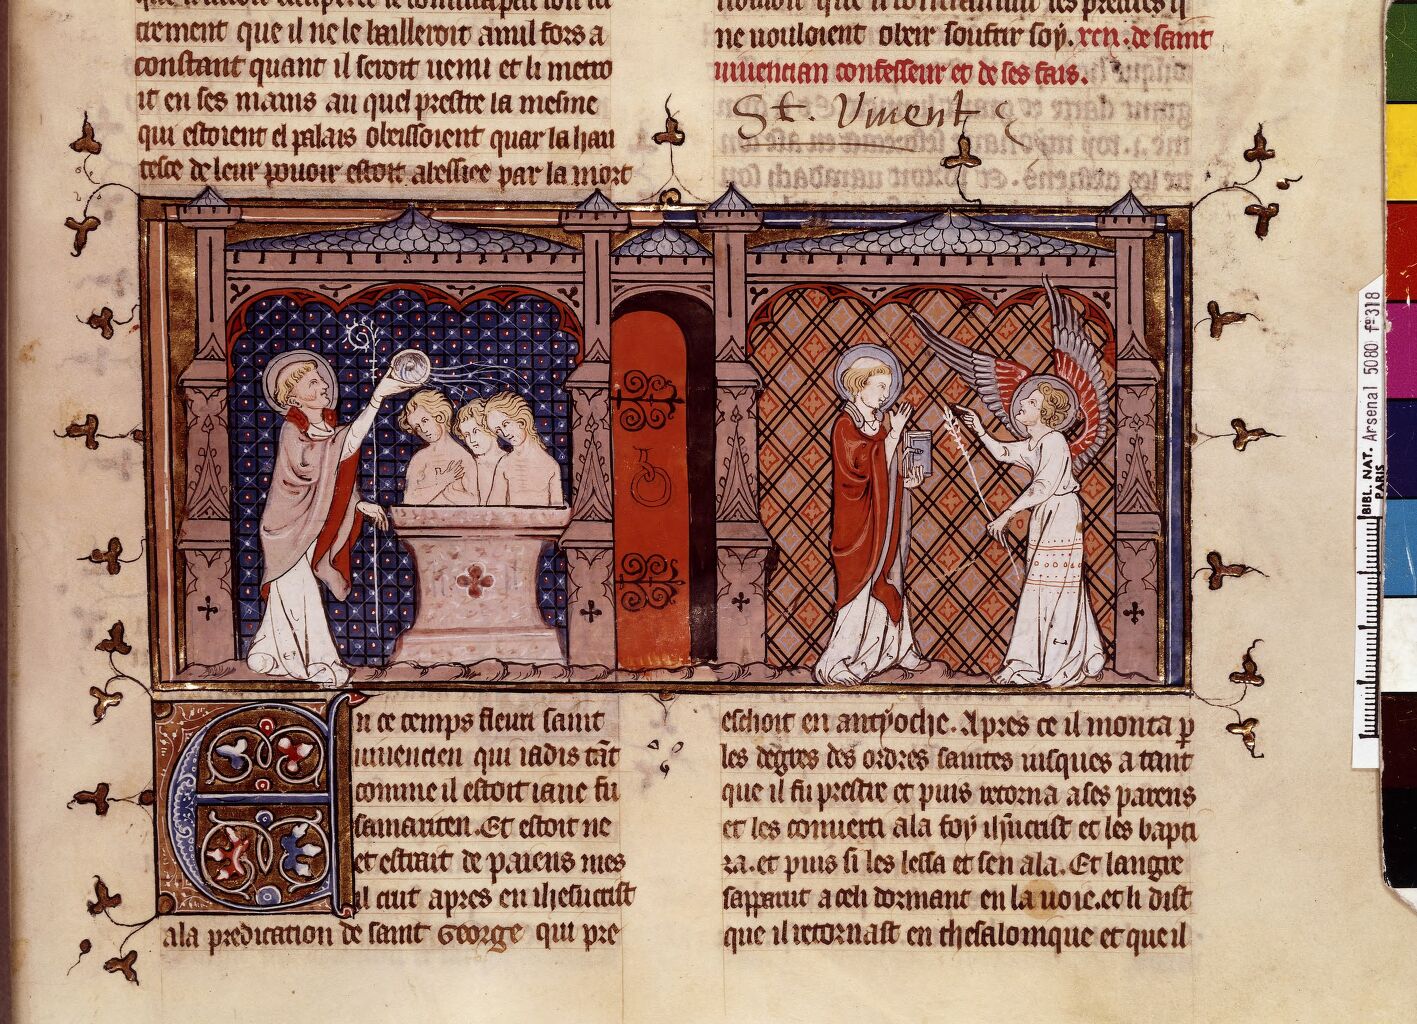 crement que il ne le bailleroit a nul fors a
constant quant il seroit uenu et li metro
it en ses mains au quel prestre la mesme
qui estoient el palais obeissoient quar la hau
tesce de leur pouoir estoit abessiee par la mort
ne uouloient obeir soufrir soy. xcii. de saint
iuuencian confesseur et de ses fais.
St Vincent
En ce temps fleuri saint
iuuencien qui iadis tāt
comme il estoit iane fu
samariten. Et estoit ne
et estrait de paiens mes
il cut apres en ihesucrist
a la predication de saint George qui pre
eschoit en antyoche. Apres ce il monta p
les degres des ordres saintes iusques a tant
que il fu prestre et puis retorna a ses parens
et les conuerti a la foy ihūcrist et les bapti
za. et puis si les lessa et sen ala. Et langre
sapparut a celi dormant en la uoie. et li dist
que il retornast en thesalonique et que il
BIBL. NAT. Arsenal 5080 fº 318
PARIS